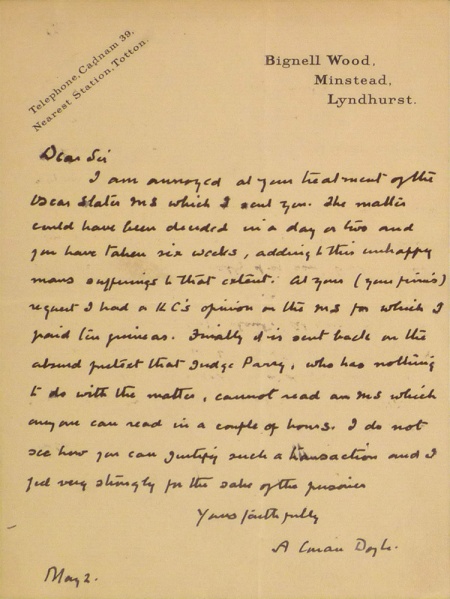 Telephone, Cadnam 39.
Nearest Station, Totton.
Bignell Wood,
Minstead,
Lyndhurst.
Dear Sir
I am annoyed at your treatment of the
Oscar Slater MS which I sent you. The matter
could have been decided in a day or two and
you have taken six weeks, adding to this unhappy
mans sufferings to that extent. At your (your firm's)
request I had a KC's opinion on the MS for which I
paid ten guineas. Finally it is sent back on the
absurd pretext that Judge Parry, who has nothing
to do with the matter, cannot read an MS which
anyone can read in a couple of hours. I do not
see how you can justify such a transaction and I
feel very strongly for the sake of the prisoner
Yours faithfully
A Conan Doyle.
May 2.